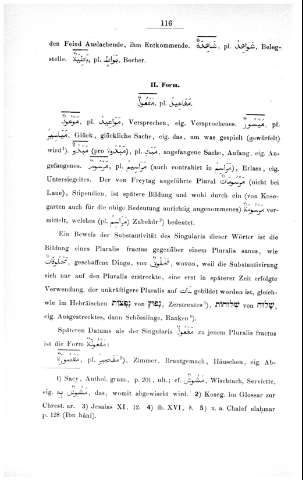 116
den Feind Auslachende, ihm Entkommende. شَاهِدَةٌ, pl. شَوَاهِدُ, Beleg-
stelle. pl. Becher.
II. Form.
مَفْعُولٌ, pl. مَفَاعِيلُ.
مَوْعُودٌ, pl. مَوَاعِيدُ, Versprechen, eig. Versprochenes. مَيْسُورٌ, pl.
مَيَاسِيرُ, Glück, glückliche Sache, eig. das, um was gespielt (gewürfelt)
wird¹). (pro مَبْدُوءٌ), pl. angefangene Sache, Anfang, eig. An-
gefangenes. مَرْسُومٌ, pl. مَرَاسِيمُ (auch contrahirt in مَرَاسِمُ), Erlass, eig.
Untersiegeltes. Der von Freytag angeführte Plural مَرْسُومَاتٌ (nicht bei
Lane), Stipendien, ist spätere Bildung und wohl durch ein (von Kose-
garten auch für die obige Bedeutung aufrichtig angenommenes) مَرْسُومَةٌ ver-
mittelt, welches (pl. مَرَاسِمُ) Zubehör²) bedeutet.
Ein Beweis der Substantivität des Singularis dieser Wörter ist die
Bildung eines Pluralis fractus gegenüber einem Pluralis sanus, wie
مَخْلُوقَاتٌ, geschaffene Dinge, von مَخْلُوقٌ, wovon, weil die Substantivirung
sich nur auf den Pluralis erstreckte, eine erst in späterer Zeit erfolgte
Verwendung, der unkräftigere Pluralis auf ـَاتٌ gebildet worden ist, gleich-
wie im Hebräischen נְפֻצוֹת von נָפוּץ, Zerstreutes³), שְׁלֻחוֹת von שָׁלוּחַ,
eig. Ausgestrecktes, dann Schösslinge, Ranken⁴).
Späteren Datums als der Singularis مَفْعُولٌ zu jenem Pluralis fractus
ist die Form مَفْعُولَةٌ.
مَقْصُورَةٌ, pl. مَقَاصِيرُ⁵), Zimmer, Brautgemach, Häuschen, eig. Ab-
1) Sacy, Anthol. gram., p. 201, ult.; cf. Wischtuch, Serviette,
eig. das, womit abgewischt wird. 2) Koseg. im Glossar zur
Chrest. ar. 3) Jesaias XI, 12. 4) ib. XVI, 8. 5) z. a. Chalef alaḥmar
p. 128 (Ibn hânî).